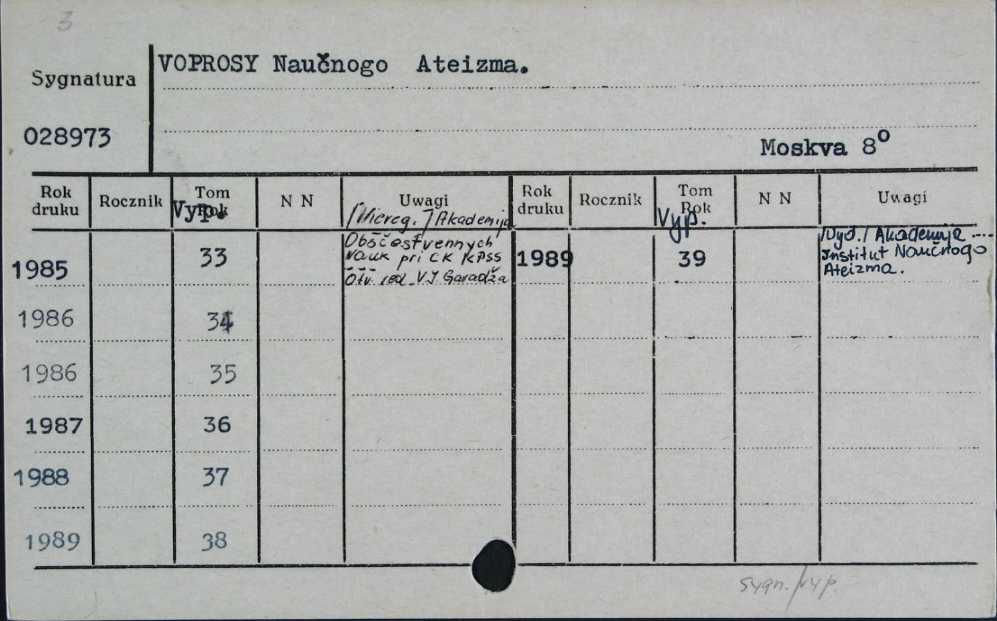 3
VOPROSY Naučnogo Ateizma.
Sygnatura
028973
Moskva 8°
Rok druku Rocznik Tom Rok Vyp. N N Uwagi Rok druku Rocznik Tom Rok Vyp. N N Uwagi
Akademija
Obščestvennych
Nauk pri CK KPSS
Otv. red. V.I. Garadža
1985 33
1989 39 /Vyd./ Akademija ....
Institut Naučnogo
Ateizma.
1986 34
1986 35
1987 36
1988 37
1989 38
sygn./vyp.